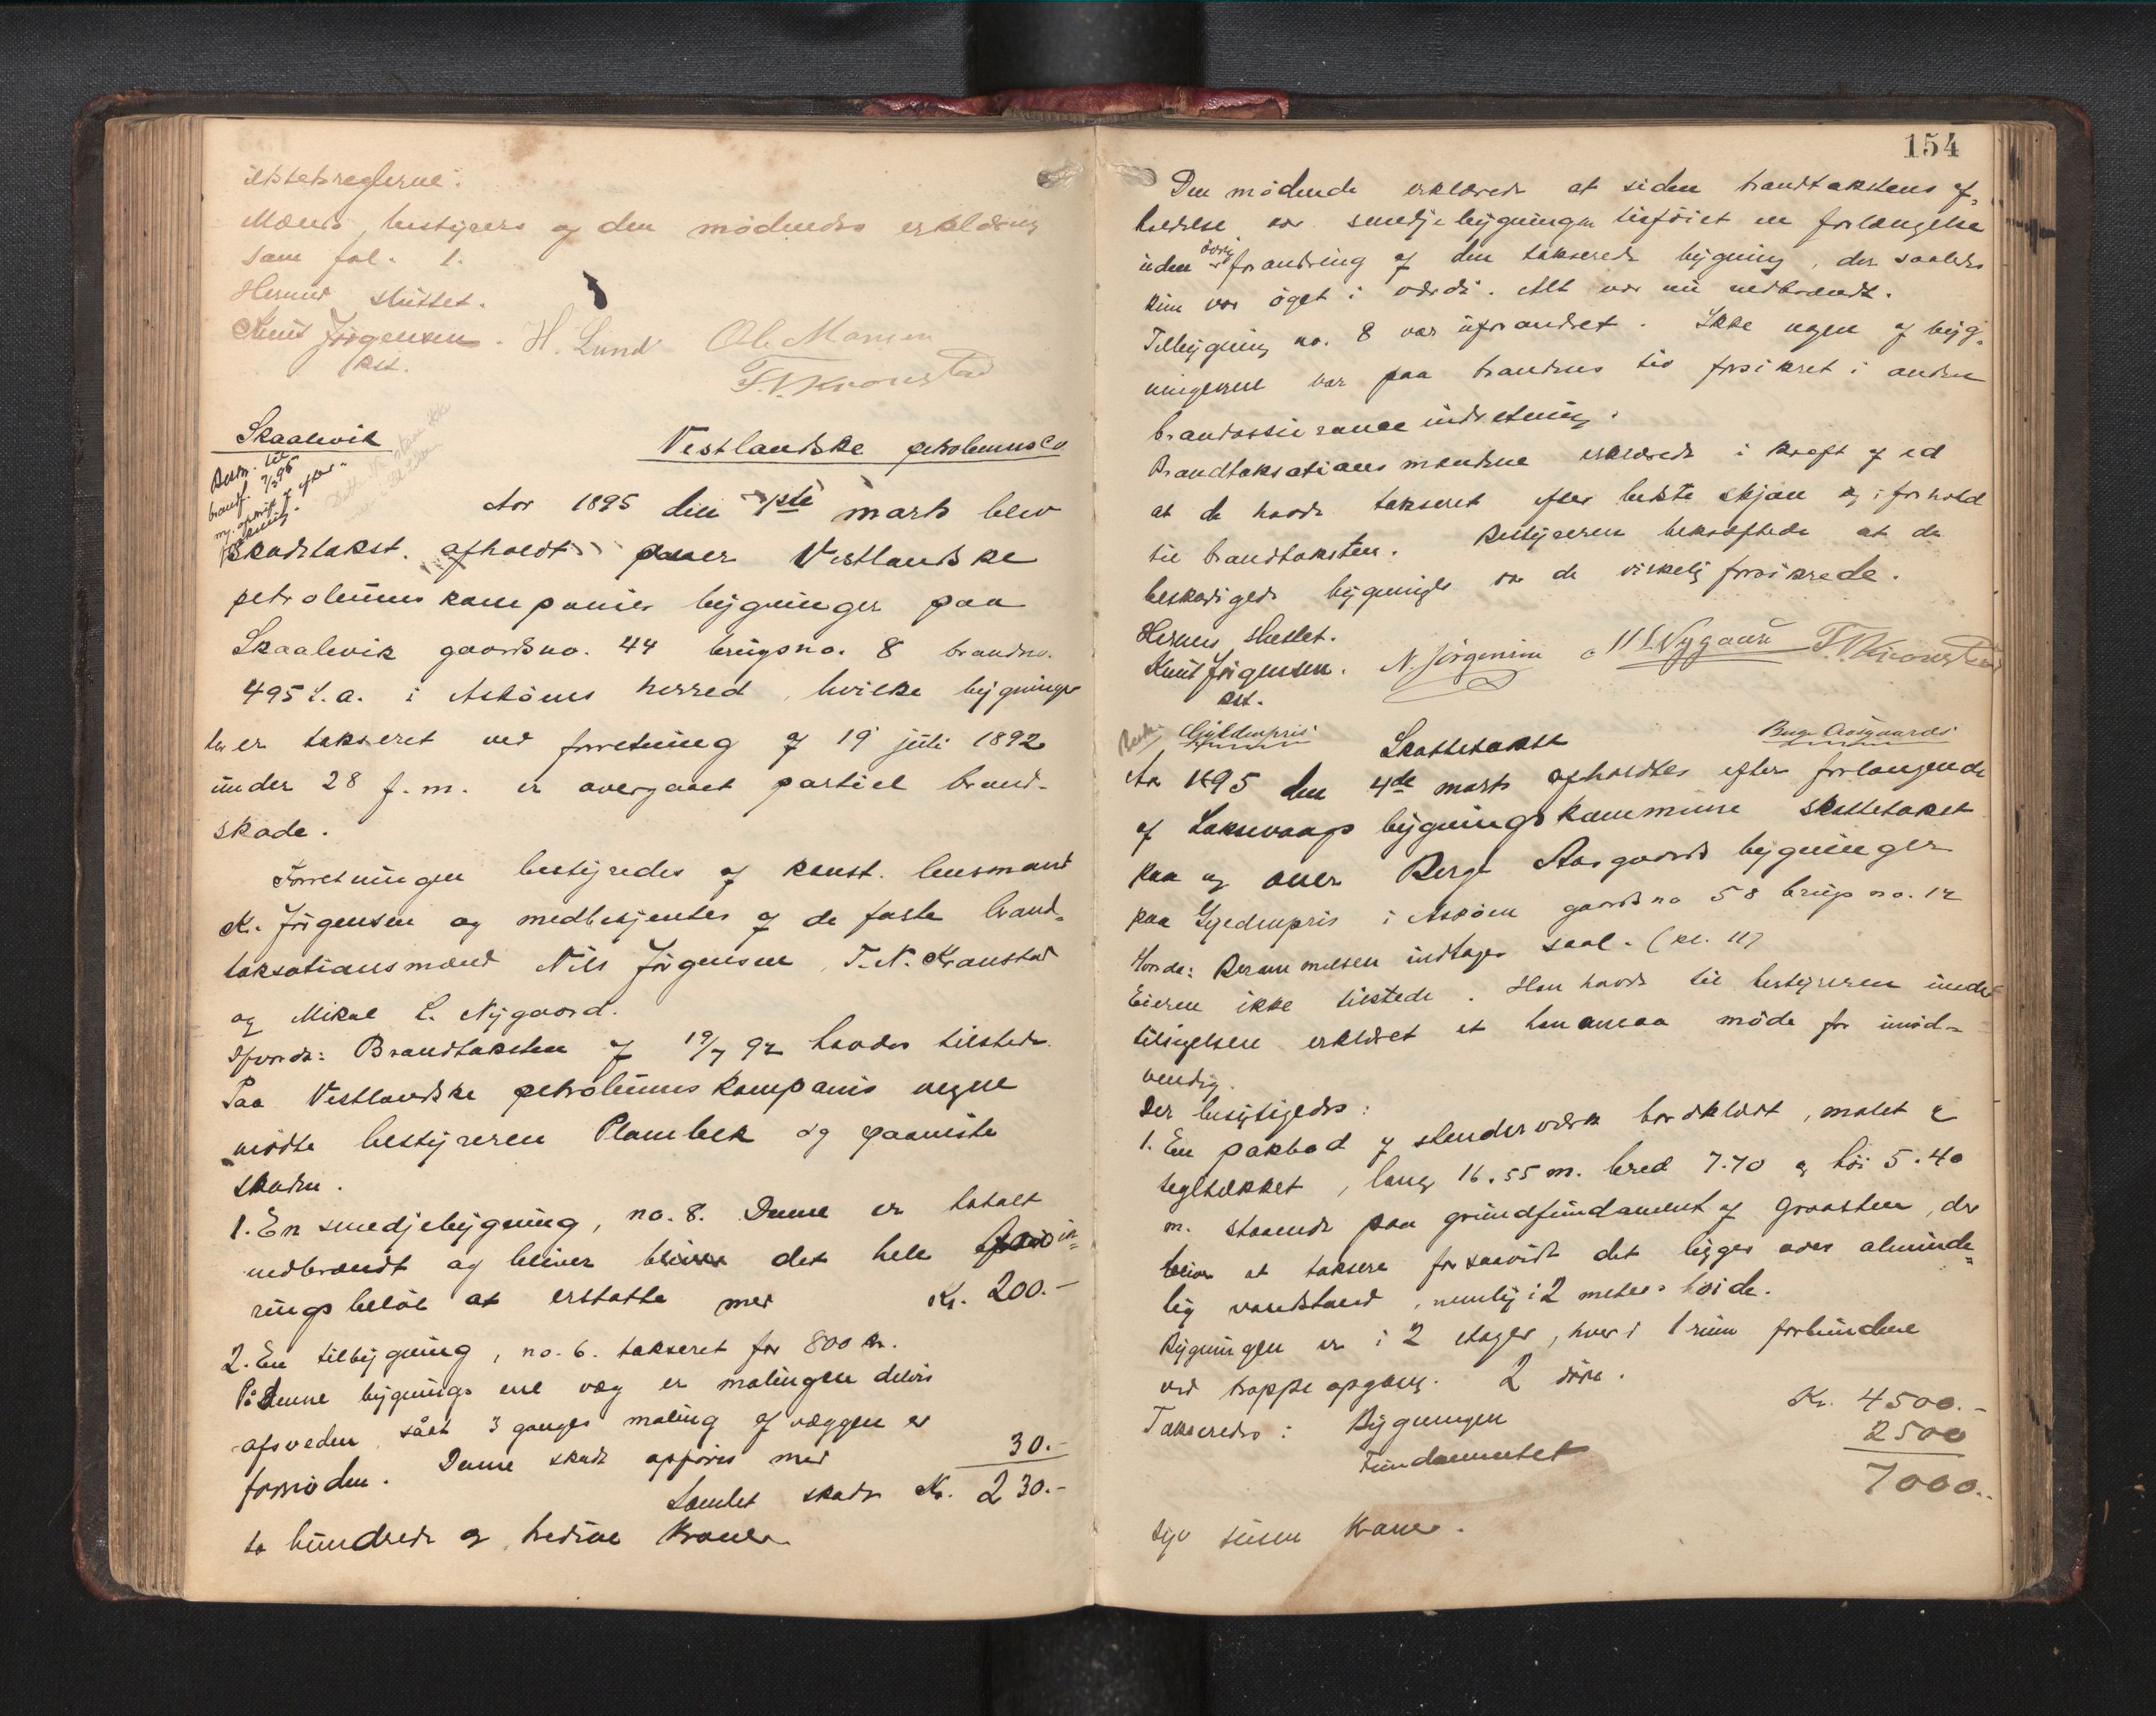 Mænds, bestyrers og den mødendes erklæring
som fol. 1.
Hermed sluttet.
Knut Jörgensen. H. Lund Ole Monsen
kst. T. N. Kronstad
Skaalevik
Vestlandske petroleumsco
Aar 1895 den 1ste marts blev
skadetakst afholdt over Vestlandske
petroleumskompanies bygninger paa
Skaalevik gaardsno. 44 brugsno. 8 brandno.
495 l.a. i Asköens herred, hvilke bygninger
der er takseret ved forretning af 19 juli 1892
under 28 f.m. er overgaaet partiel brand-
skade.
Forretningen bestyredes af konst. lensmand
K. Jörgensen og medbetjentes af de faste brand-
taksationsmænd Nils Jörgensen, T. N. Kronstad
og Mikal L. Nygaard.
Brandtaksten af 19/7 92 havdes tilstede.
Paa Vestlandske petroleumskompanis vegne
mödte bestyreren Plambek og paaviste
skaden.
1. En smedjebygning, no. 8. Denne er totalt
nedbrændt og bliver det hele
ringsbelöb at erstatte med Kr. 200.-
2. En tilbygning, no. 6. takseret for 800 kr.
På denne bygnings ene væg er malingen delvis
afsveden, såat 3 ganges maling af væggen er
fornöden. Denne skade opföres med 30.-
Samlet skade Kr. 230.-
to hundrede og tredive Kroner
154
Den mödende erklærede at siden brandtakstens af-
holdelse var smedjebygningen tilföiet en forlængelse
uden övrig forandring af den takserede bygning, der saaledes
kun var öget i værdi. Alt var nu nedbrændt.
Tilbygning no. 8 var uforandret. Ikke nogen af byg-
ningerne var paa brandens tid forsikret i anden
brandassuranceindretning.
Brandtaksationsmændene erklærede i kraft af ed
at de havde takseret efter bedste skjön og i forhold
til brandtaksten. Bestyreren bekræftede at de
beskadigede bygninger var de virkelig forsikrede.
Hermed sluttet.
Knut Jörgensen. N. Jörgensen M L Nygaard T. N. Kronstad
kst.
Gyldenpris Skattetakst Berge Aasgaards
Aar 1895 den 4de marts afholdtes efter forlangende
af Laksevaags bygningskommune skattetakst
paa og over Berge Aasgaards bygninger
paa Gyldenpris i Asköen gaardsno 58 brugsno. 12
Beramm​elsen indtages saal. (kl. 11)
Eieren ikke tilstede. Han havde til bestyreren under
tilsigelsen erklæret at han ansaa möde for unöd-
vendig.
Der besigtigedes:
1. En pakbod af stenderværk bordklædt, malet &
tegltækket, lang 16.55 m. bred 7.70 og höi 5.40
m. staaende paa grundfundament af graasten, der
bliver at taksere forsaavidt det ligger over alminde-
lig vandstand, nemlig i 2 meters höide.
Bygningen er i 2 etager, hver i 1 rum forbundne
ved trappeopgang. 2 döre.
Takseredes: Bygningen Kr. 4500.-
Fundamentet 2500
7000.-
Syv tusen Kroner.